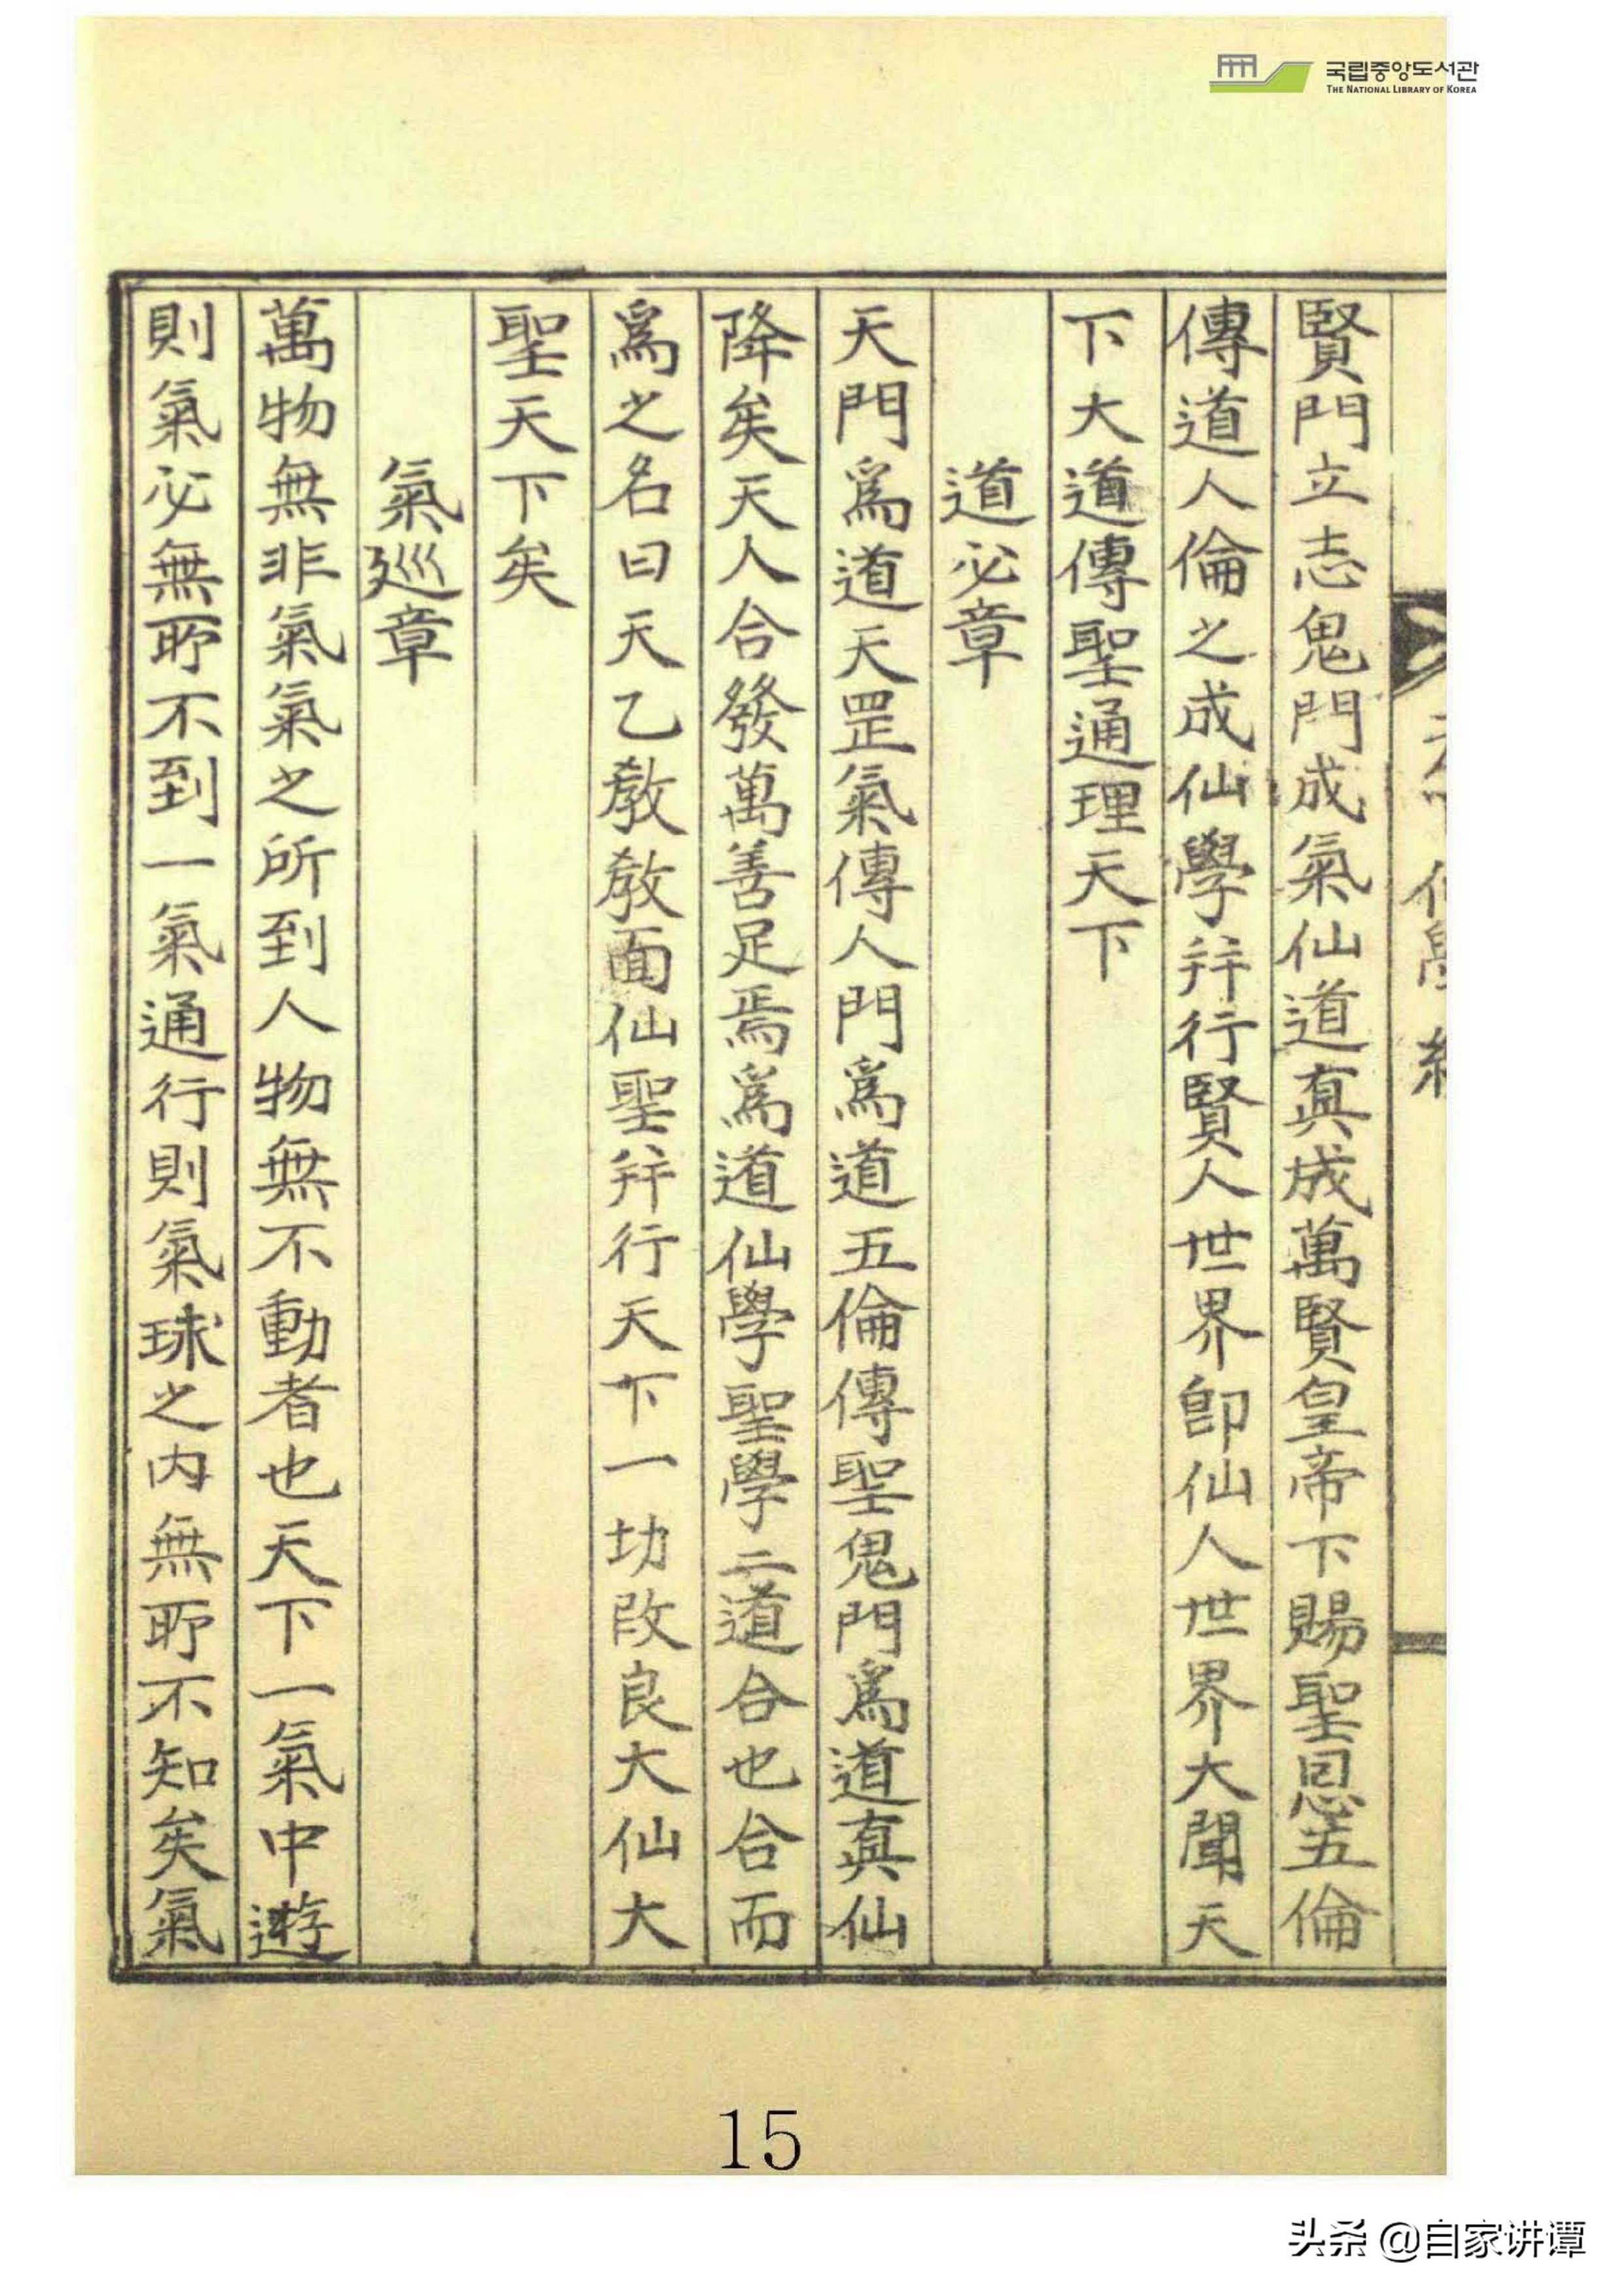 국립중앙도서관
THE NATIONAL LIBRARY OF KOREA
賢門立志鬼門成氣仙道真成萬賢皇帝下賜聖恩五倫
傳道人倫之成仙學幷行賢人世界卽仙人世界大聞天
下大道傳聖通理天下
道必章
天門爲道天罡氣傳人門爲道五倫傳聖鬼門爲道真仙
降矣天人合發萬善足焉爲道仙學聖學二道合也合而
爲之名曰天乙敎敎面仙聖幷行天下一功改良大仙大
聖天下矣
氣巡章
萬物無非氣氣之所到人物無不動者也天下一氣中遊
則氣必無所不到一氣通行則氣球之內無所不知矣氣
15
头条 @自家讲谭